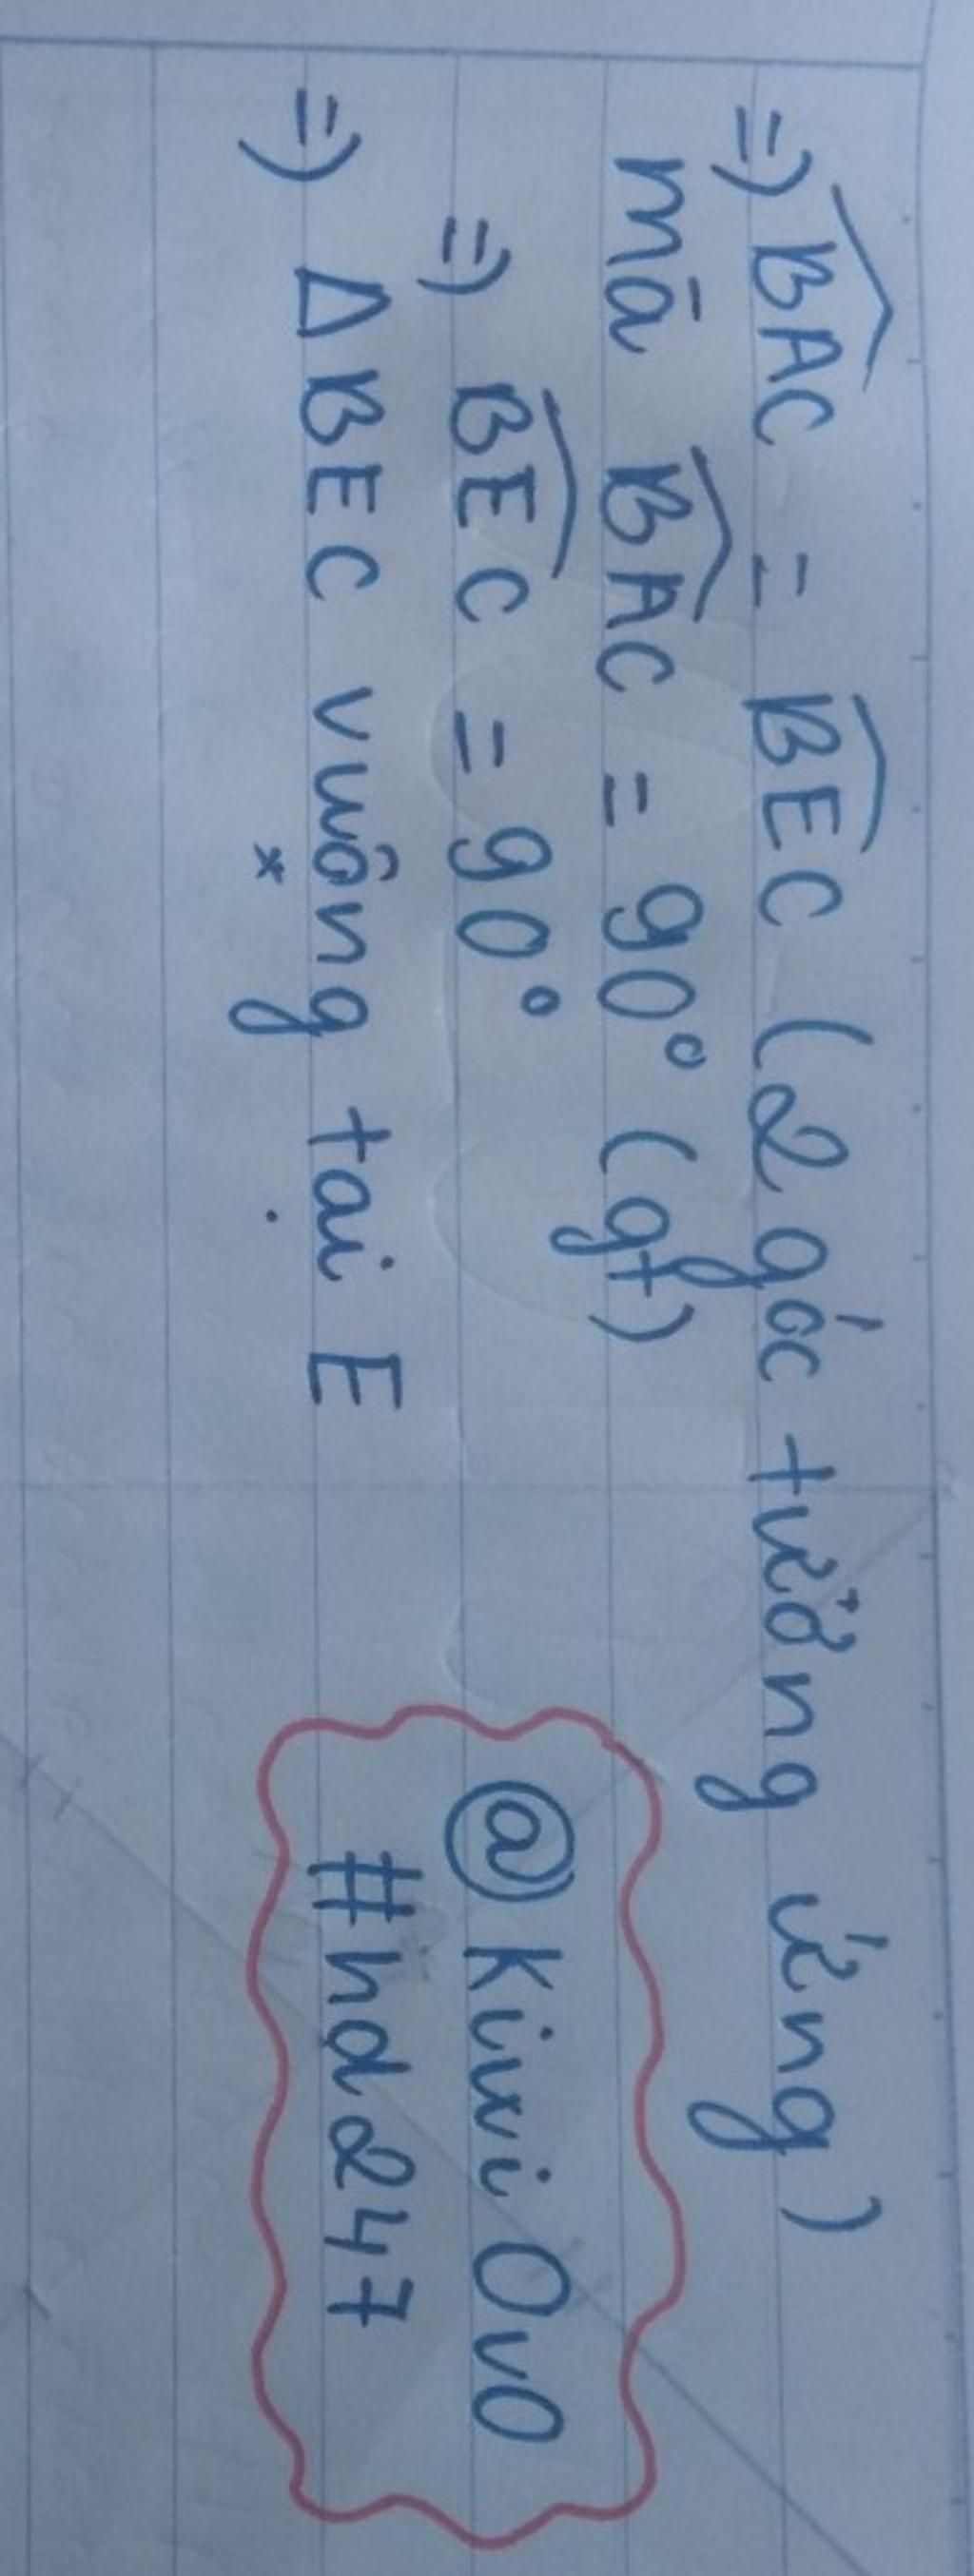 =) \widehat{BAC} = \widehat{BEC} (2 góc tương ứng)
mà \widehat{BAC} = 90° (gt)
=) \widehat{BEC} = 90°
=) Δ BEC vuông tại E
@ Kiwi OvO
#hd247